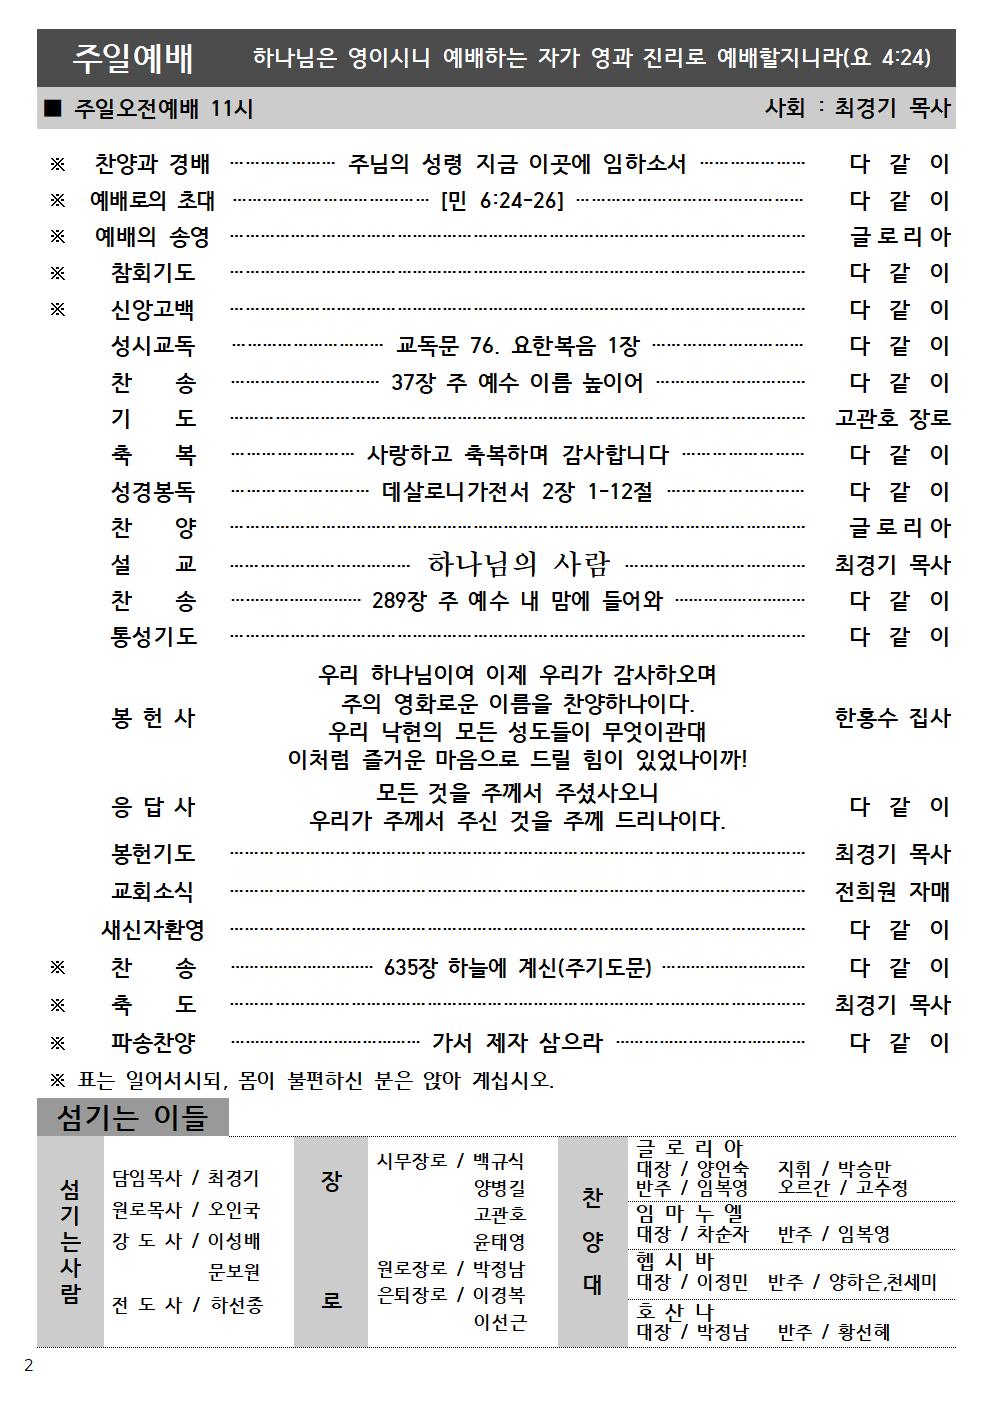 주일예배 하나님은 영이시니 예배하는 자가 영과 진리로 예배할지니라(요 4:24)
■ 주일오전예배 11시 사회 : 최경기 목사
※ 찬양과 경배 ············ 주님의 성령 지금 이곳에 임하소서 ············ 다 같 이
※ 예배로의 초대 ············ [민 6:24-26] ············ 다 같 이
※ 예배의 송영 ············ 글로리아
※ 참회기도 ············ 다 같 이
※ 신앙고백 ············ 다 같 이
성시교독 ············ 교독문 76. 요한복음 1장 ············ 다 같 이
찬 송 ············ 37장 주 예수 이름 높이어 ············ 다 같 이
기 도 ············ 고관호 장로
축 복 ············ 사랑하고 축복하며 감사합니다 ············ 다 같 이
성경봉독 ············ 데살로니가전서 2장 1-12절 ············ 다 같 이
찬 양 ············ 글로리아
설 교 ············ 하나님의 사람 ············ 최경기 목사
찬 송 ············ 289장 주 예수 내 맘에 들어와 ············ 다 같 이
통성기도 ············ 다 같 이
우리 하나님이여 이제 우리가 감사하오며
주의 영화로운 이름을 찬양하나이다.
봉 헌 사 한홍수 집사
우리 낙현의 모든 성도들이 무엇이관대
이처럼 즐거운 마음으로 드릴 힘이 있었나이까!
모든 것을 주께서 주셨사오니
응 답 사 다 같 이
우리가 주께서 주신 것을 주께 드리나이다.
봉헌기도 ············ 최경기 목사
교회소식 ············ 전희원 자매
새신자환영 ············ 다 같 이
※ 찬 송 ············ 635장 하늘에 계신(주기도문) ············ 다 같 이
※ 축 도 ············ 최경기 목사
※ 파송찬양 ············ 가서 제자 삼으라 ············ 다 같 이
※ 표는 일어서시되, 몸이 불편하신 분은 앉아 계십시오.
섬기는 이들
섬기는사람
담임목사 / 최경기
원로목사 / 오인국
강 도 사 / 이성배
문보원
전 도 사 / 하선종
장로
시무장로 / 백규식
양병길
고관호
윤태영
원로장로 / 박정남
은퇴장로 / 이경복
이선근
찬양대
글 로 리 아
대장 / 양언숙 지휘 / 박승만
반주 / 임복영 오르간 / 고수정
임 마 누 엘
대장 / 차순자 반주 / 임복영
헵 시 바
대장 / 이정민 반주 / 양하은,천세미
호 산 나
대장 / 박정남 반주 / 황선혜
2